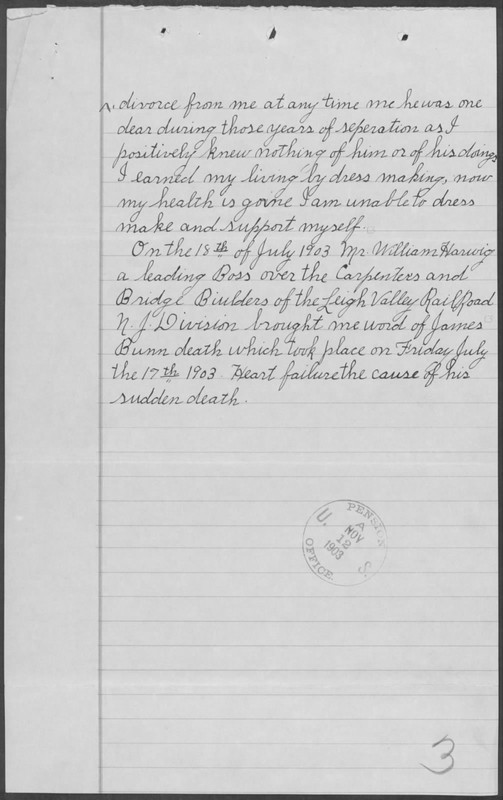 divorce from me at any time me he was one
dear during those years of seperation as I
positively knew nothing of him or of his doings
I earned my living by dress making, now
my health is goine I am unable to dress
make and support myself.
On the 18th of July 1903 Mr. William Harwig
a leading Boss over the Carpenters and
Bridge Biulders of the Leigh Valley Rail Road
N. J. Division brought me word of James
Bunn death which took place on Friday July
the 17th 1903 Heart failure the cause of his
sudden death.
U. S. PENSION OFFICE.
A
NOV
12
1903
3